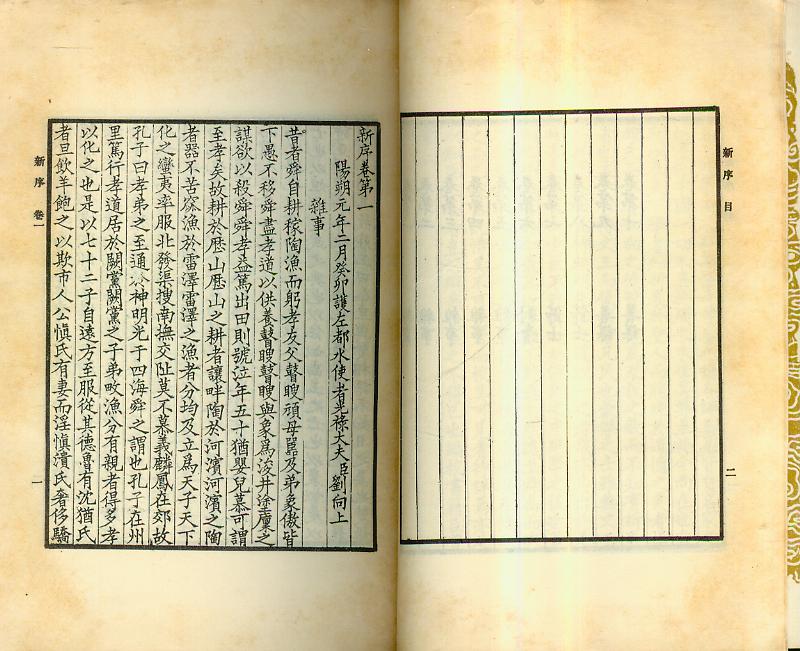 新序 目
二
新序卷第一
陽朔元年二月癸卯護左都水使者光祿大夫臣劉向上
雜事
昔者舜自耕稼陶漁而躬孝友父瞽瞍頑母嚚及弟象傲皆
下愚不移舜盡孝道以供養瞽瞍瞽瞍與象爲浚井塗廩之
謀欲以殺舜舜孝益篤出田則號泣年五十猶嬰兒慕可謂
至孝矣故耕於歷山歷山之耕者讓畔陶於河濱河濱之陶
者器不苦窳漁於雷澤雷澤之漁者分均及立爲天子天下
化之蠻夷率服北發渠搜南撫交阯莫不慕義麟鳳在郊故
孔子曰孝弟之至通於神明光于四海舜之謂也孔子在州
里篤行孝道居於闕黨闕黨之子弟畋漁分有親者得多孝
以化之也是以七十二子自遠方至服從其德魯有沈猶氏
者旦飲羊飽之以欺市人公愼氏有妻而淫愼潰氏奢侈驕
新序 卷一
一